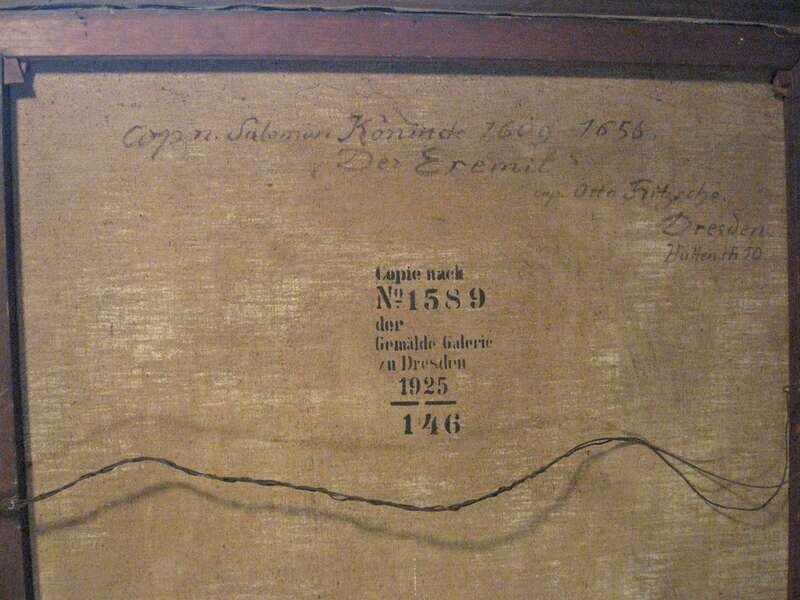 Cop. n. Salomon Köninck 1609 - 1656.
"Der Eremit"
cop. Otto Fritzsche.
Dresden.
50.
Copie nach
No 1589
der
Gemälde Galerie
zu Dresden
1925
146